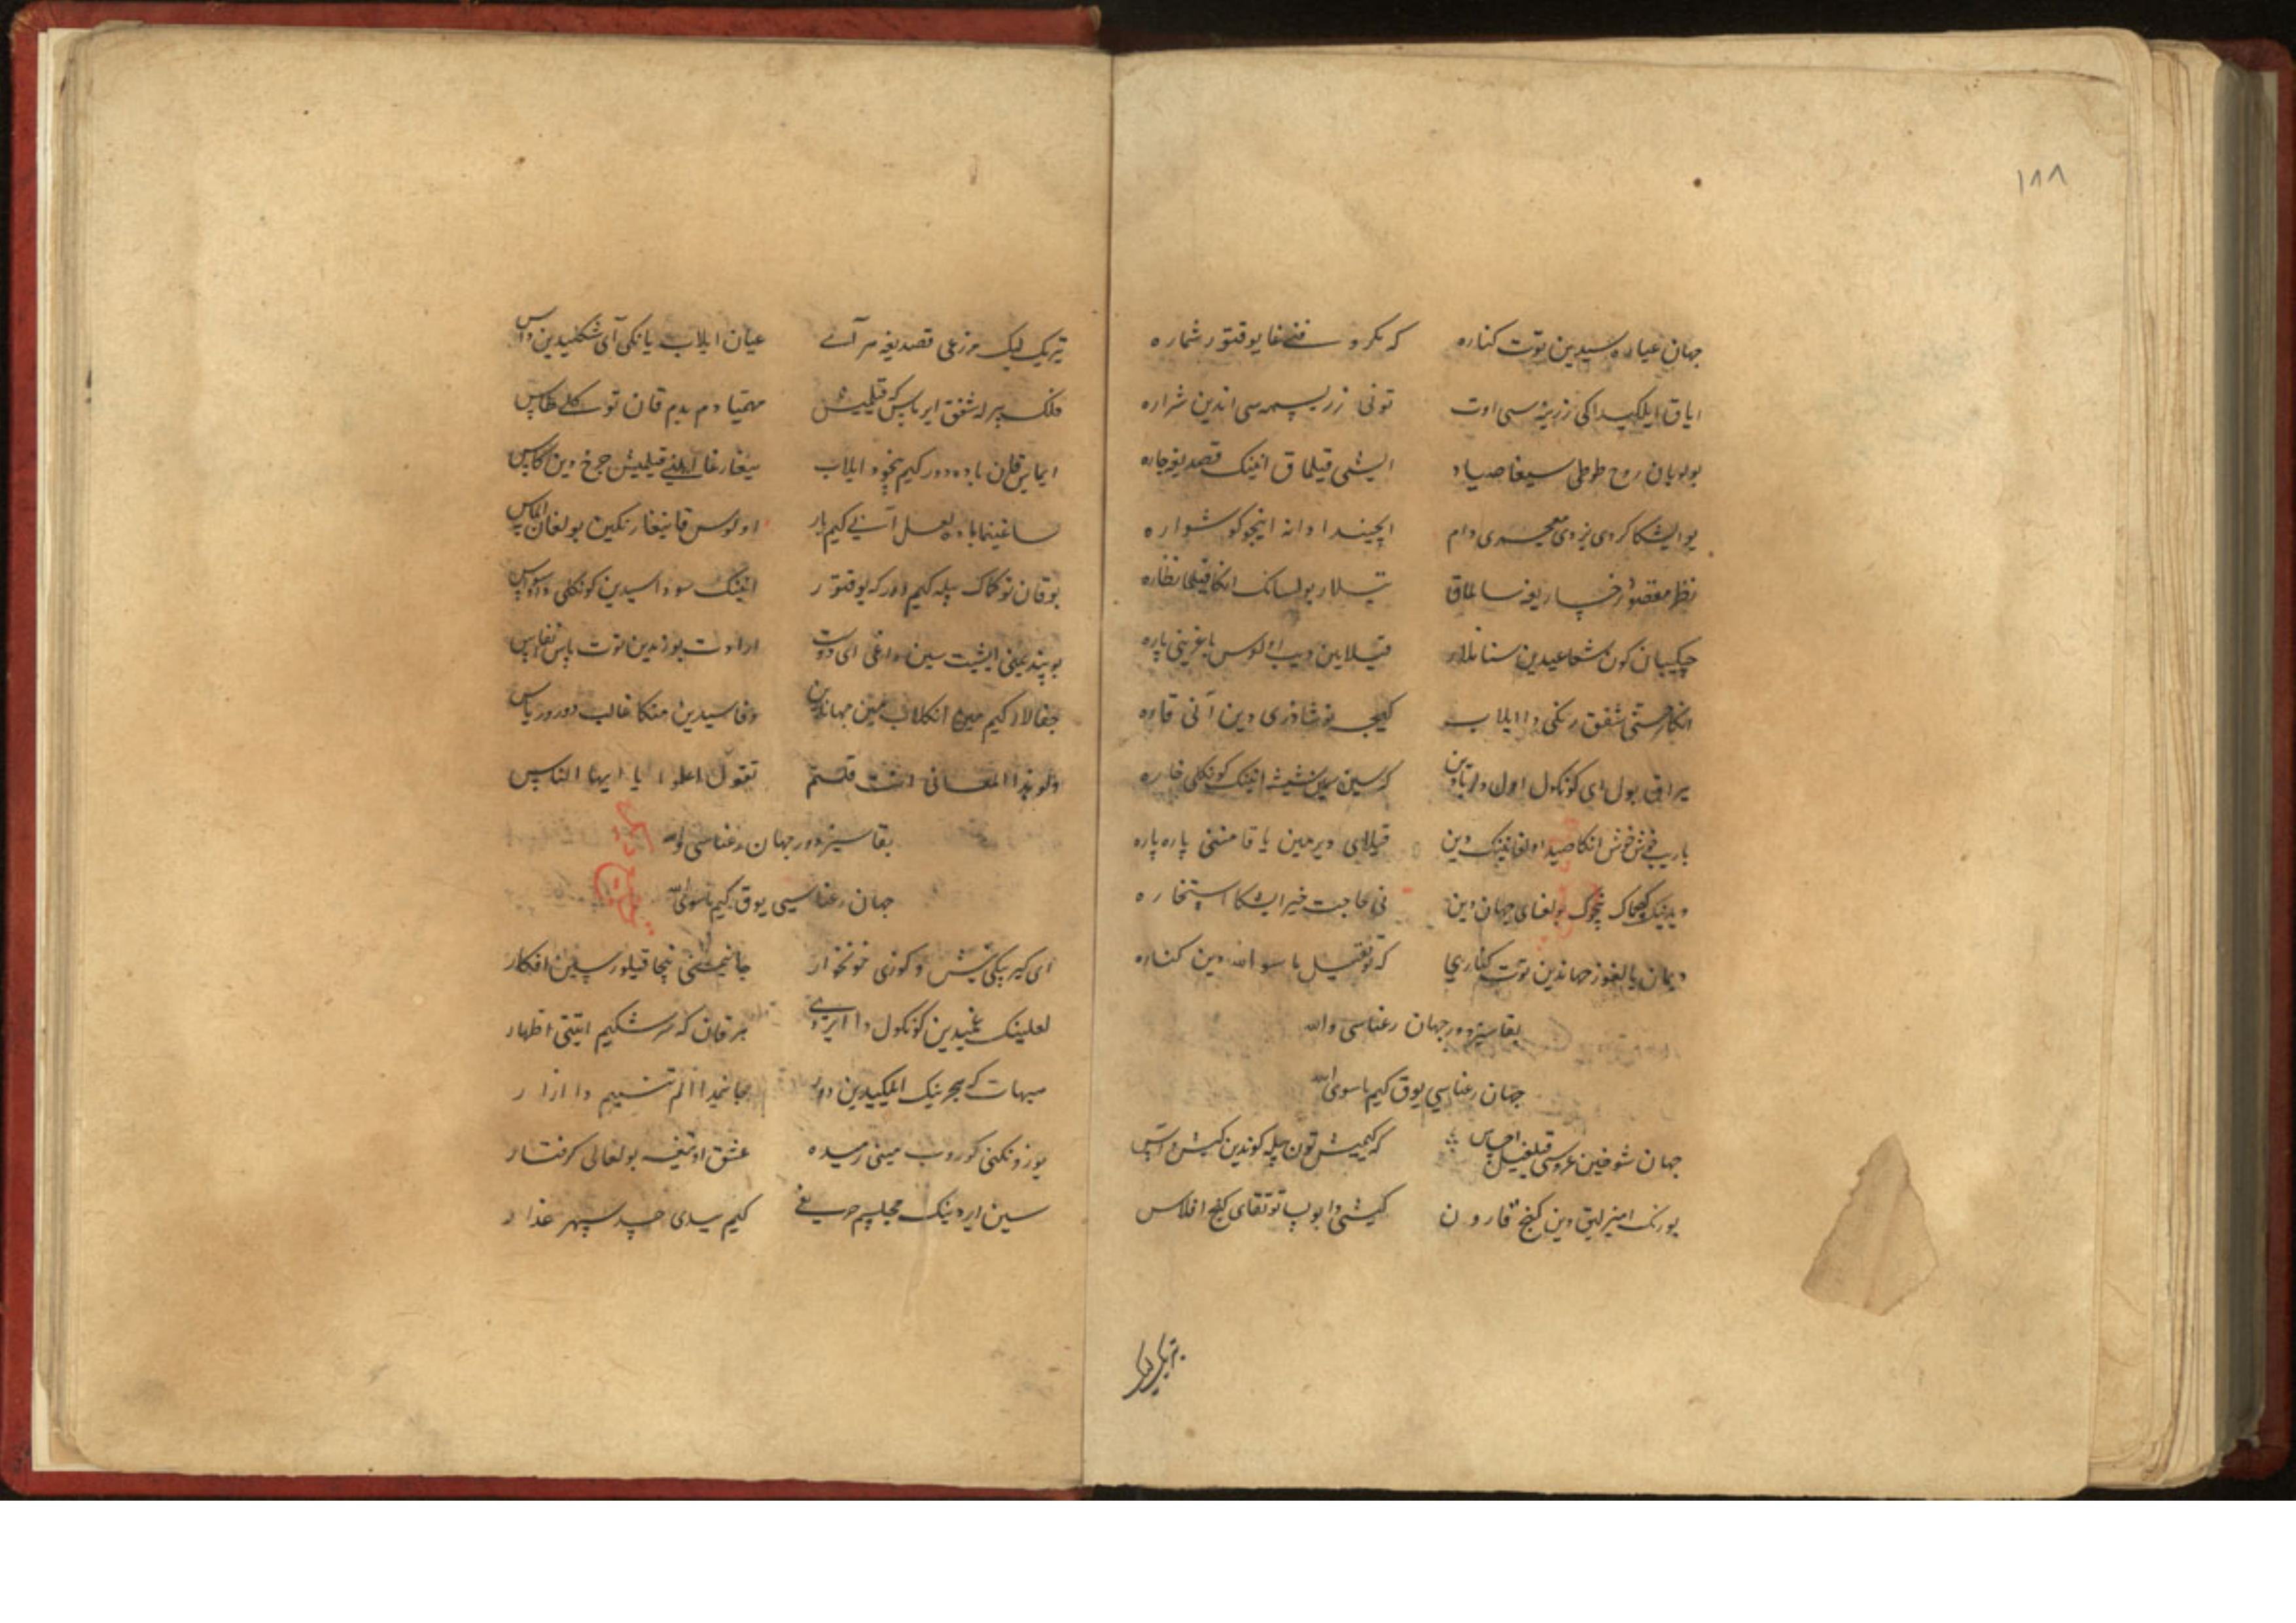 ١٨٨
جهان عیاره سیدین توت کناره که مکر و فنیغا یوقتور شماره
ایاق ایلکیداکی زرینه سی اوت تونی زر پسمه سی اندین شراره
بولوبان روح طوطی سیغا صیاد ایشی قیلماق انینک قصدیغه چاره
یوایشکا کردی یزدی معجری دام ایچیندا دانه اینجو کوشواره
نظر مقصود رخساریغه سالماق تیلار بولسانک انکا قیلما نظاره
چیکیبان کون شعاعیدین سنانلار قیلاین دیب اولوس باغرینی پاره
انکا رستی شفق رنکی دا ایلاب کیجه نوشادری دین آنی قاره
یراق بول ای کونکول اول دلربادین که سین سین شیشه انینک کونکلی خاره
قیلای دیرمین یاقامنی پاره پاره
بولغای جهان دین نی حاجت خیر ایشکا استخاره
دیمان یالغوز جهاندین توت کناری که توتقیل ماسو الله دین کناره
بقاسیزدور جهان رعناسی والله
جهان رعناسی یوق کیم ماسوی الله
جهان شوخین عروسی قیلغیل احساس که کیمیش تون بیله کوندین کیش و آتس
یورنک امنیزلیق دین کنج قارون کیشی دا بو بساتوتقای کنج افلاس
تیریک لیک مزرعی قصدیغه هر آی عیان ایلاب یانکی آی شکلیدین داس
فلک بیر له شفق ایرماس که قیلمیش مهیا دم بدم قان توله طاس
ایماس قان باده دور کیم نخود ایلاب سیغارغا ایلنی قیلمیش چرخ دین کاس
ساغینما باده لعل آنی کیم بار اولوس قانیغا رنکین بولغان الماس
بو قان توکماک بیله کیم دور که یوقتور انینک سوداسیدین کونکلی دا وسواس
بو پندیمنی ایشیت سین داغی ای دوست ارادت یوزندین توت پاس انفاس
جفالار کیم مین انکلاب مین جهاندین وفاسیدین منکا غالب دورور یاس
ولو هذا المعانی انت قلتم تقول اعلموا یا ایها الناس
بقاسیزدور جهان رعناسی والله
جهان رعناسی یوق کیم ماسوی الله
ای کیربیکی نیش و کوزی خونخوار جانیمنی نیچا قیلورسین افکار
لعلینک غمیدین کونکول دا ایردی هر قان که سرشکیم ایتی اظهار
هیهات که هجرینک ایلکیدین دور جانیمدا الم تنیم دا آزار
یوزونکنی کوروب مینی رمیده عشق اوتیغه بولغالی کرفتار
سین ایردینک مجلسیم حریفی کیم سیدی حسد سپهر غدار
تیریک لیک